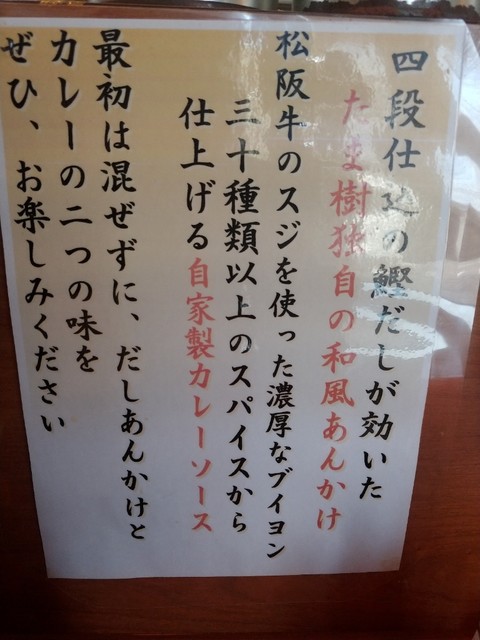 四段仕込の鰹だしが効いた
たま樹独自の和風あんかけ
松阪牛のスジを使った濃厚なブイヨン
三十種類以上のスパイスから
仕上げる自家製カレーソース
最初は混ぜずに、だしあんかけと
カレーの二つの味を
ぜひ、お楽しみください